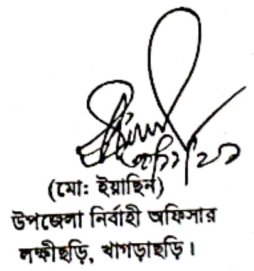 (মো: ইয়াছিন)
উপজেলা নির্বাহী অফিসার
লক্ষীছড়ি, খাগড়াছড়ি।